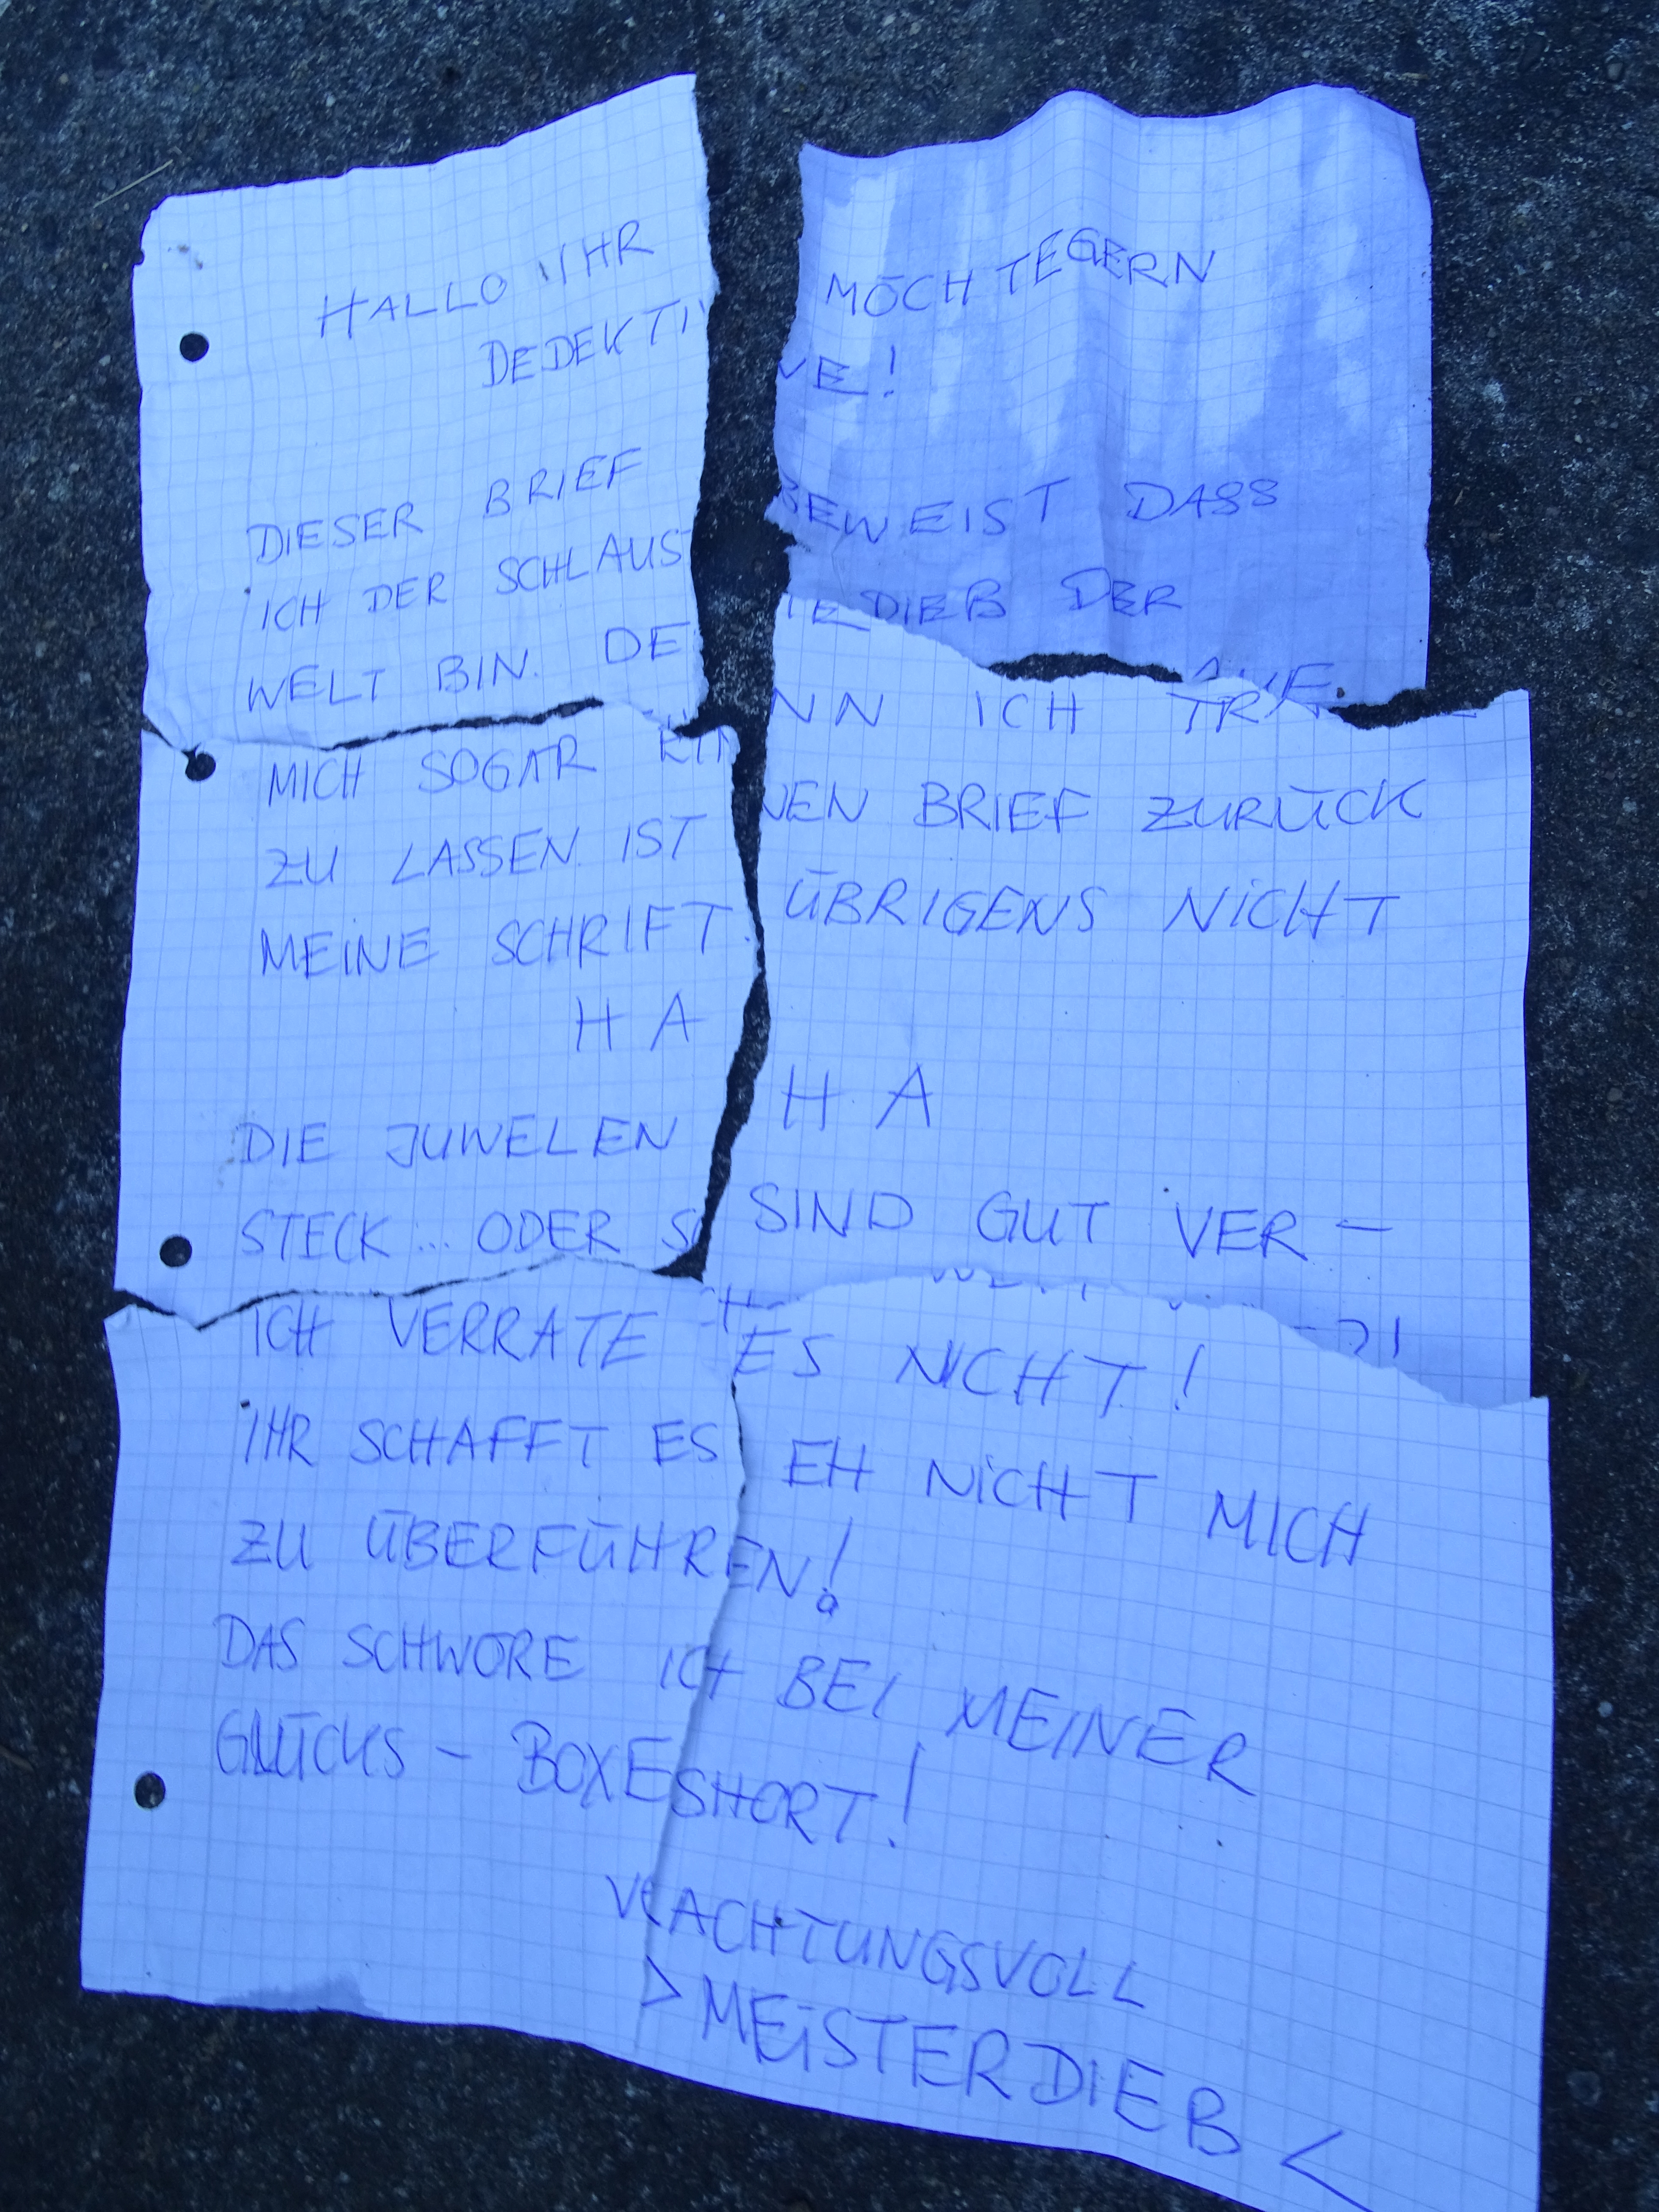 HALLO IHR MÖCHTEGERN
DEDEKTIVE!
DIESER BRIEF BEWEIST DASS
ICH DER SCHLAUSTE DIEB DER
WELT BIN. DENN ICH
MICH SOGAR EINEN BRIEF ZURÜCK
ZU LASSEN. IST ÜBRIGENS NICHT
MEINE SCHRIFT.
HA HA
DIE JUWELEN SIND GUT VER-
STECK... ODER
ICH VERRATE ES NICHT!
IHR SCHAFFT ES EH NICHT MICH
ZU ÜBERFÜHREN!
DAS SCHWÖRE ICH BEI MEINER
GLÜCKS - BOXESHORT!
VERACHTUNGSVOLL
> MEISTERDIEB <